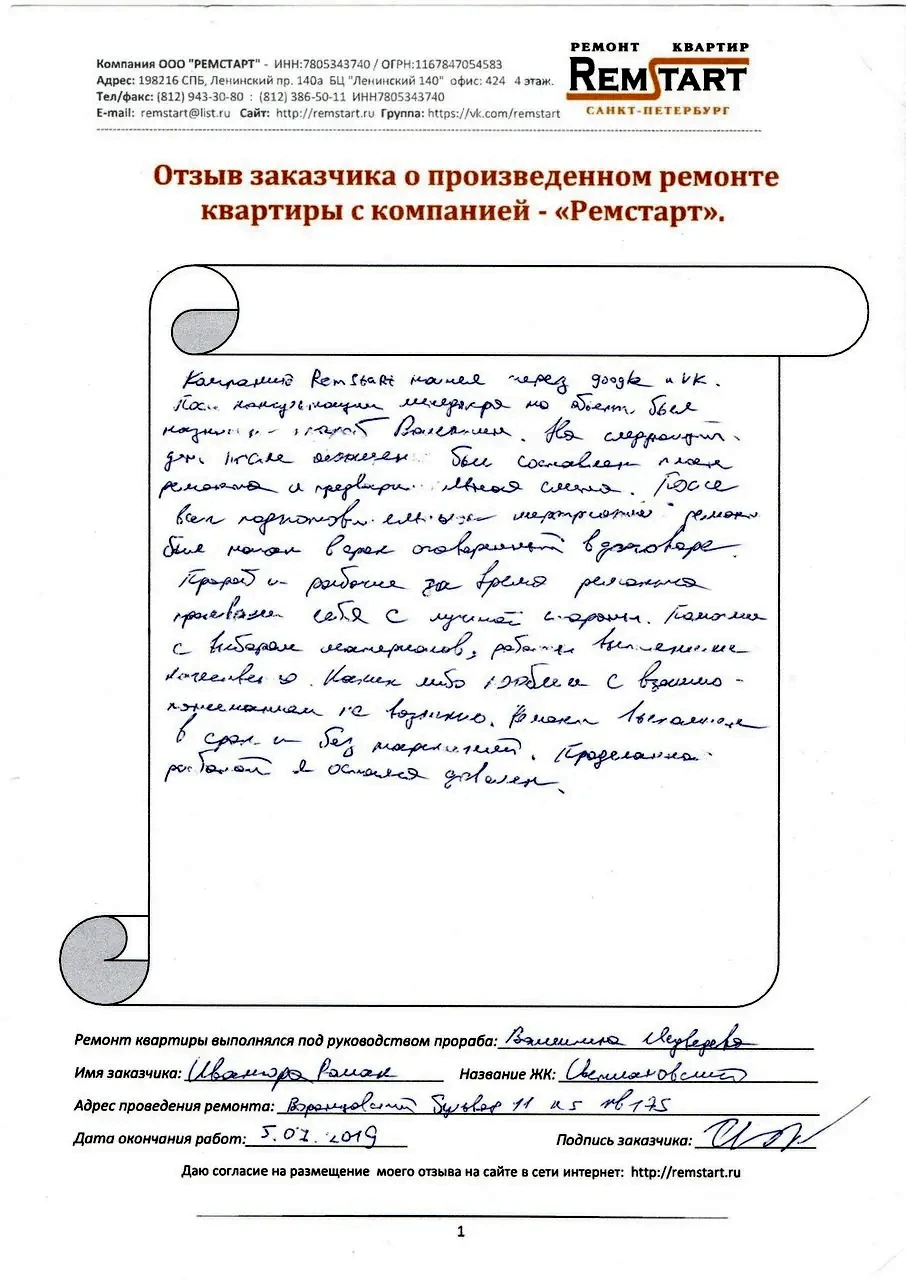 Компания ООО "РЕМСТАРТ" - ИНН:7805343740 / ОГРН:1167847054583
Адрес: 198216 СПБ, Ленинский пр. 140а БЦ "Ленинский 140" офис: 424 4 этаж.
Тел/факс: (812) 943-30-80 : (812) 386-50-11 ИНН7805343740
E-mail: remstart@list.ru Сайт: http://remstart.ru Группа: https://vk.com/remstart
РЕМОНТ КВАРТИР
REMSTART
САНКТ-ПЕТЕРБУРГ
Отзыв заказчика о произведенном ремонте
квартиры с компанией - «Ремстарт».
Компанию RemStart нашел через google и VK.
После консультации менеджера на объект был
назначен прораб Валентин. На следующий
день после был составлен план
ремонта и предварительная смета. После
всех подготовительных мероприятий ремонт
был начат в срок оговоренный в договоре.
Прораб и рабочие за время ремонта
проявили себя с лучшей стороны. Помогли
с выбором материалов, работы выполнены
качественно. Каких либо проблем с взаимо-
пониманием не возникло. Ремонт выполнен
в срок и без нареканий. Проделанной
работой я остался доволен.
Ремонт квартиры выполнялся под руководством прораба: Валентина Медведева
Имя заказчика: Роман Название ЖК:
Адрес проведения ремонта: Воронцовский бульвар 11 к5 кв 175
Дата окончания работ: 5.07.2019 Подпись заказчика:
Даю согласие на размещение моего отзыва на сайте в сети интернет: http://remstart.ru
1